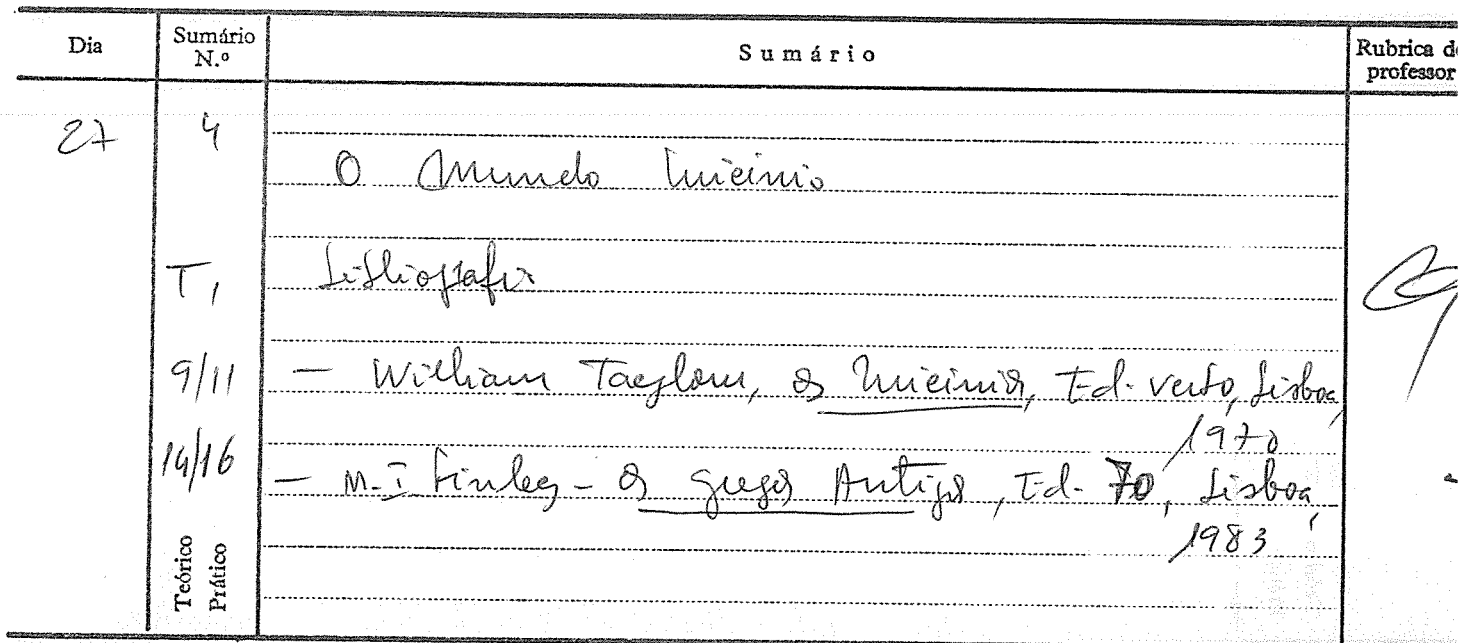 Dia
Sumário N.º
Sumário
Rubrica do professor
27
4
O Mundo Micénio
T1
Bibliografia
9/11
— William Taylour, Os Micénios, Ed. Verbo, Lisboa,
1970
14/16
— M. I Finley - Os gregos Antigos, Ed. 70, Lisboa,
1983
Teórico
Prático